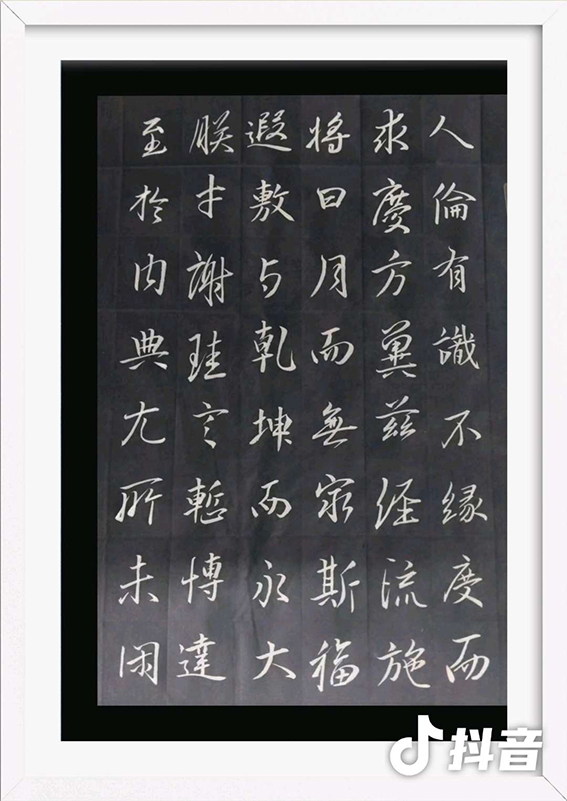 人倫有識不緣度而
求慶方冀茲經流施
將日月而無窮斯福
遐敷与乾坤而永大
朕才謝珪言慙博達
至於内典尤所未閑
抖音